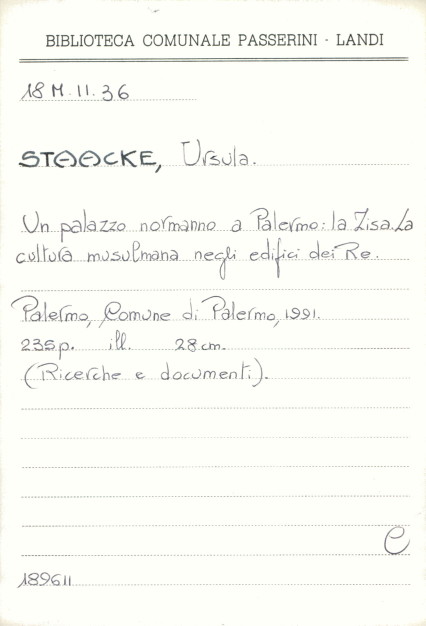 BIBLIOTECA COMUNALE PASSERINI - LANDI
18 M. II. 36
STAACKE, Ursula.
Un palazzo normanno a Palermo: la Zisa. La
cultura musulmana negli edifici dei Re.
Palermo, Comune di Palermo, 1991.
235 p. ill. 28 cm.
(Ricerche e documenti).
C
189611